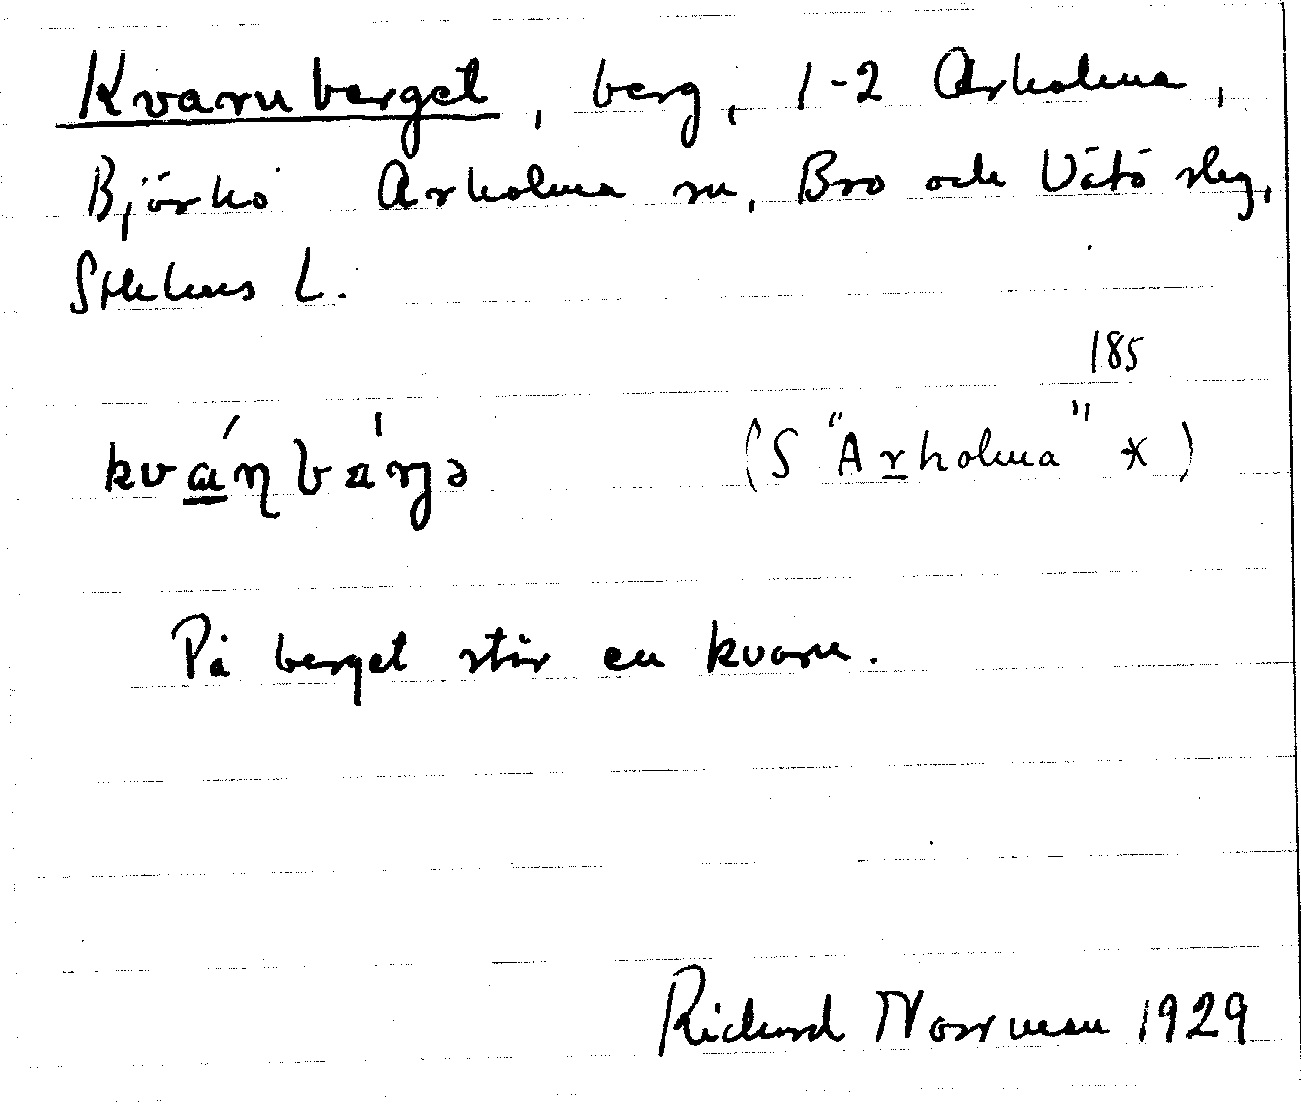 Kvarnberget, berg, 1-2 Arholma,
Björkö Arholma sn, Bro och Vätö slg,
Sthlms L.
185
kvάṇbα̍rjə (S "Arholma" *)
På berget står en kvarn.
Richard Norrman 1929